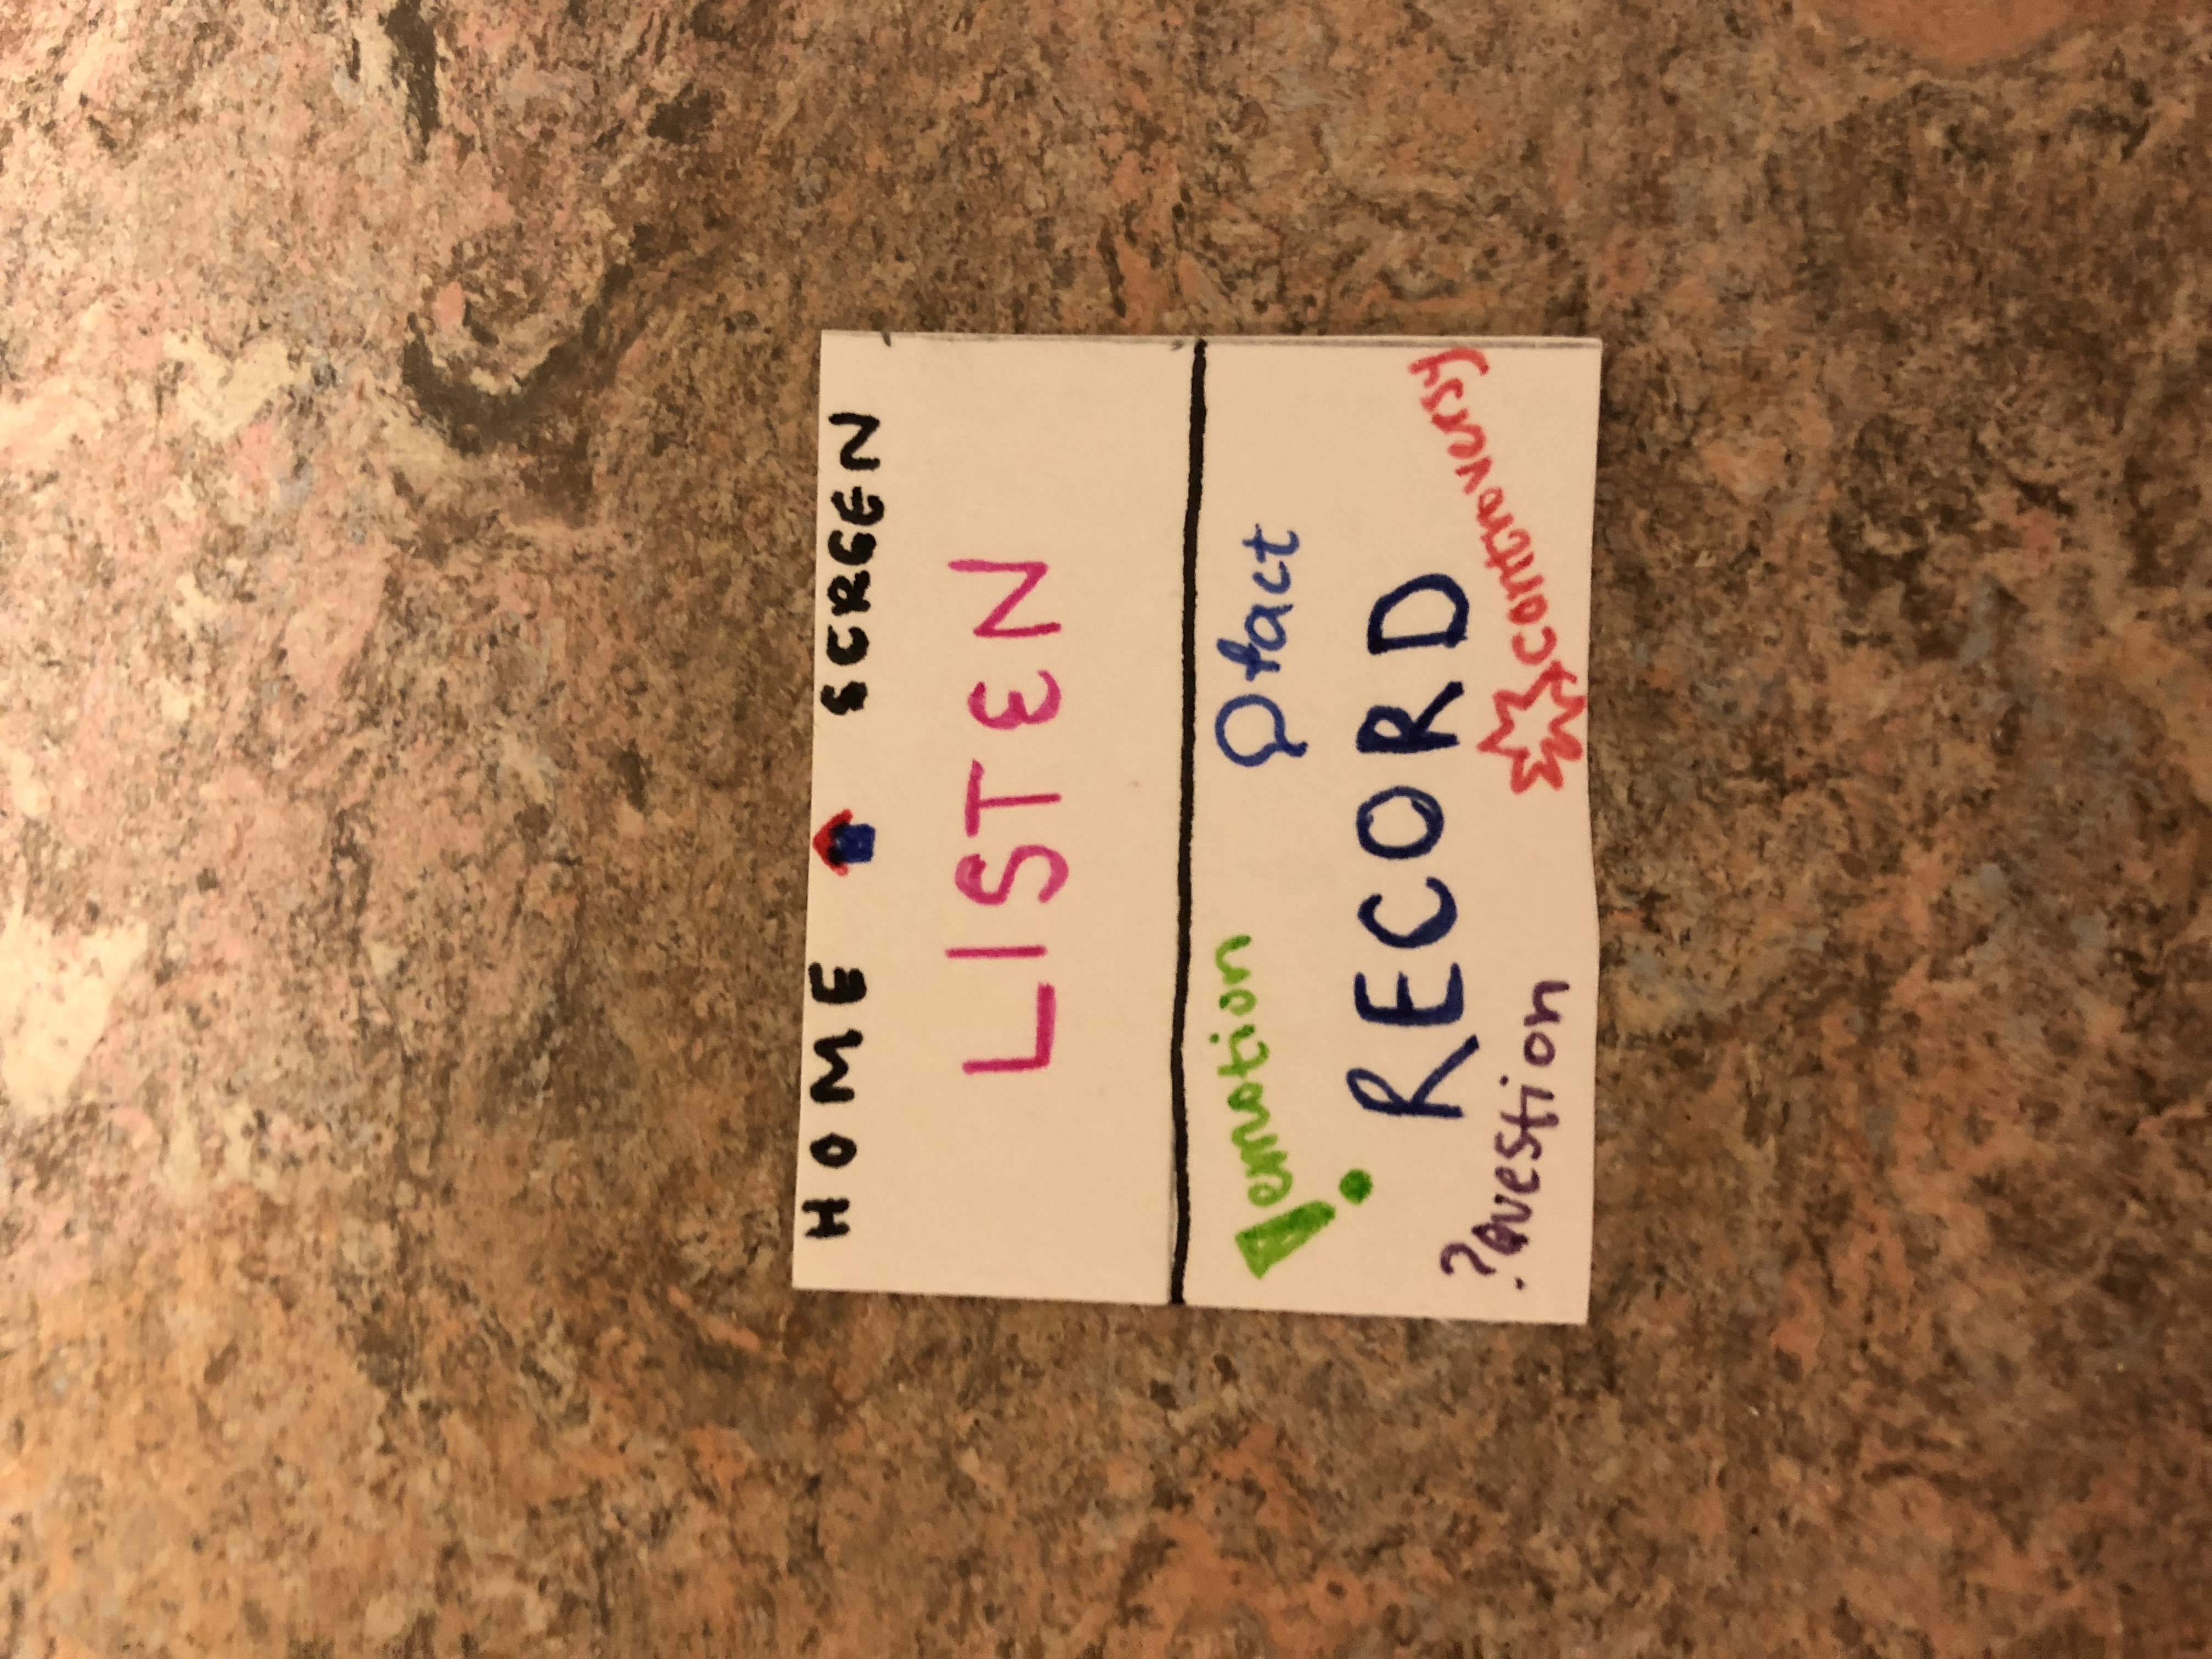 HOME SCREEN
LISTEN
emotion
fact
RECORD
?question
controversy